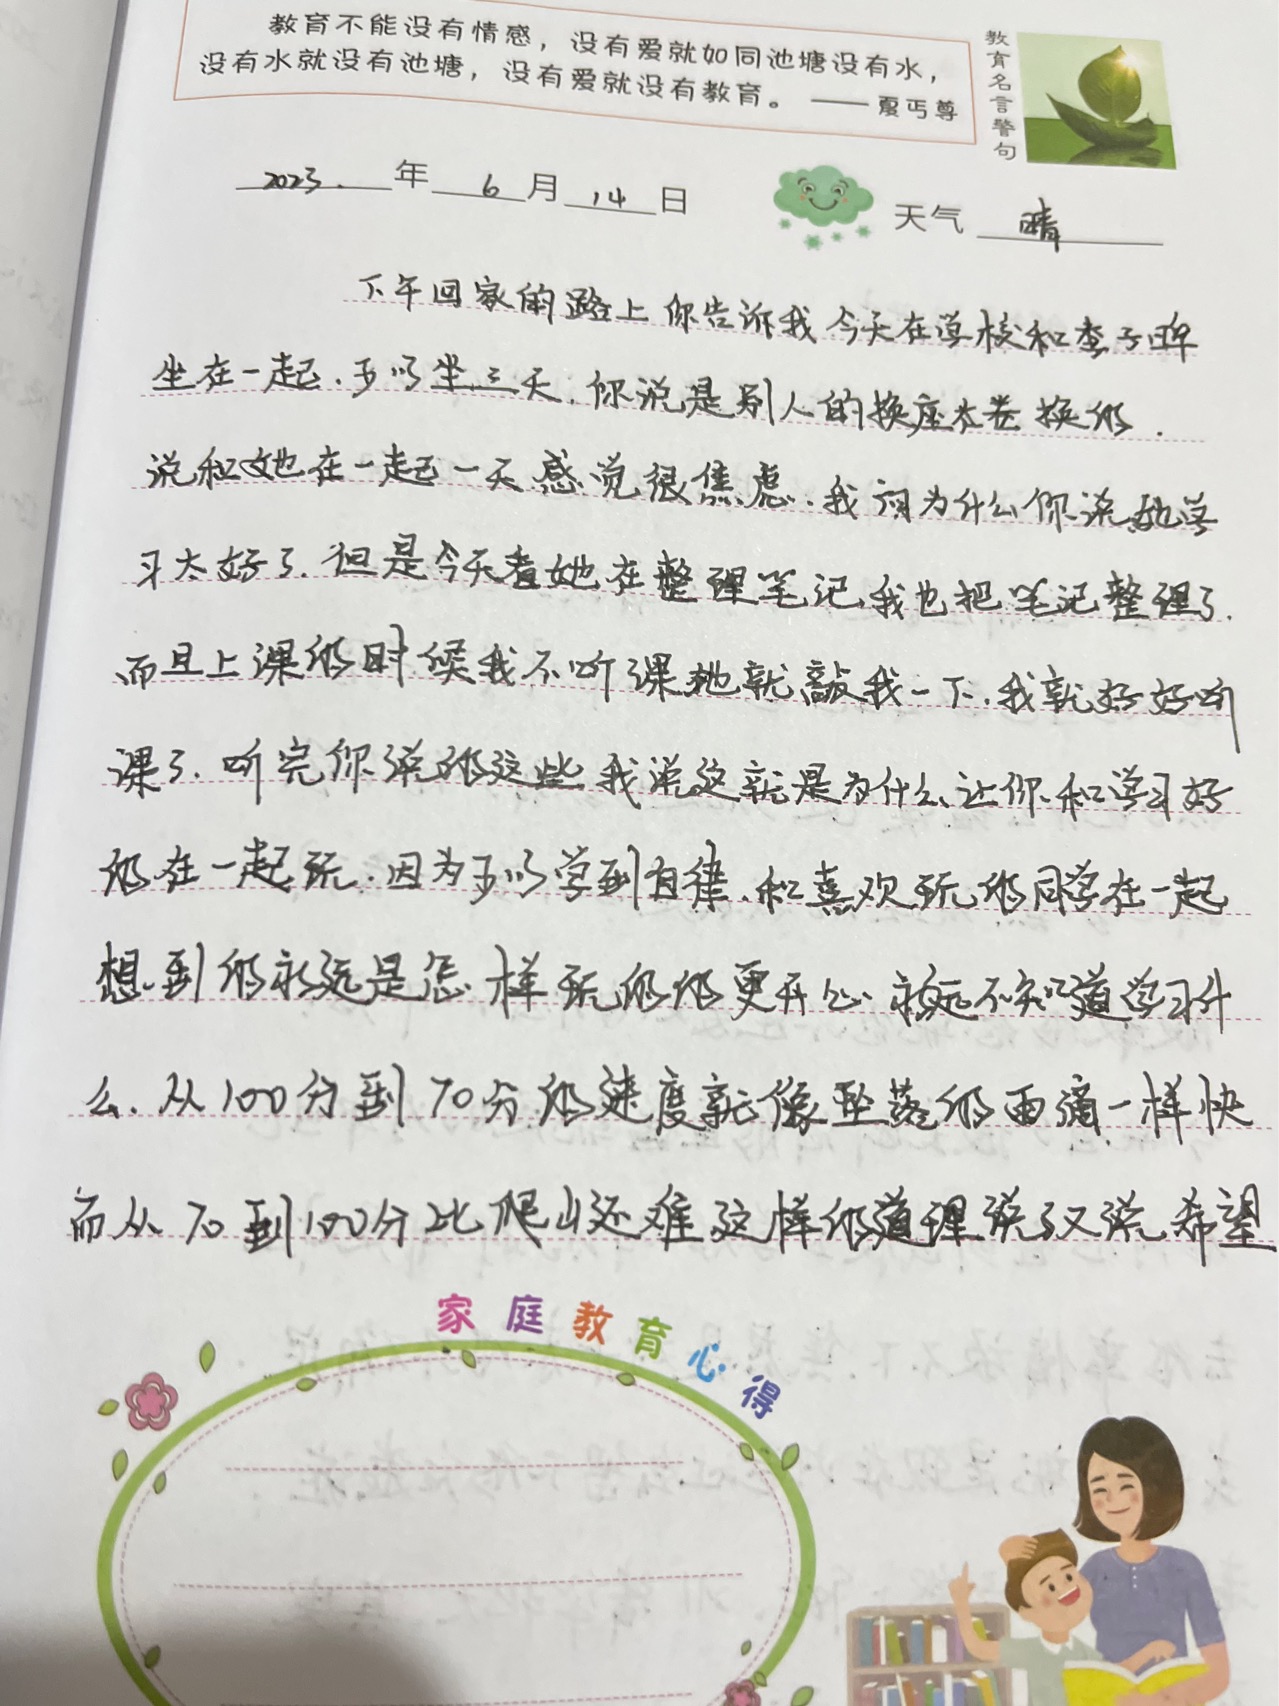 教育不能没有情感，没有爱就如同池塘没有水，
没有水就没有池塘，没有爱就没有教育。 —— 夏丏尊
教育名言警句
2023. 年 6 月 14 日
天气 晴
下午回家的路上你告诉我今天在学校和李子晔
坐在一起.可以坐三天.你说是别人的换座本卷换的.
说和她在一起一天感觉很焦虑.我问为什么你说她学
习太好了.但是今天看她在整理笔记我也把笔记整理了.
而且上课的时候我不听课她就敲我一下.我就好好听
课了.听完你说的这些我说这就是为什么让你和学习好
的在一起玩.因为可以学到自律.和喜欢玩的同学在一起
想到的永远是怎样玩的的更开心永远不知道学习什
么.从100分到70分的速度就像坠落的雨滴一样快
而从70到100分比爬山还难这样的道理说了又说希望
家庭教育心得